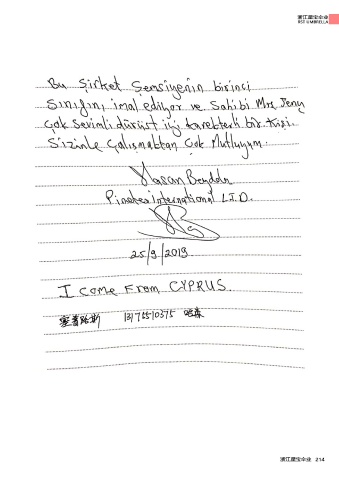 浙江星宝伞业
RST UMBRELLA
Bu Şirket Şemsiyenin birinci
Sınıfını imal ediyor ve Sahibi Mrs Jeny
Çok Sevimli dürüst iyi karekterli bir Kişi.
Sizinle Çalışmaktan Çok Mutluyum.
Hasan Beydola
International LTD.
25/9/2019
I come From CYPRUS.
塞普路斯 哈森
浙江星宝伞业 214